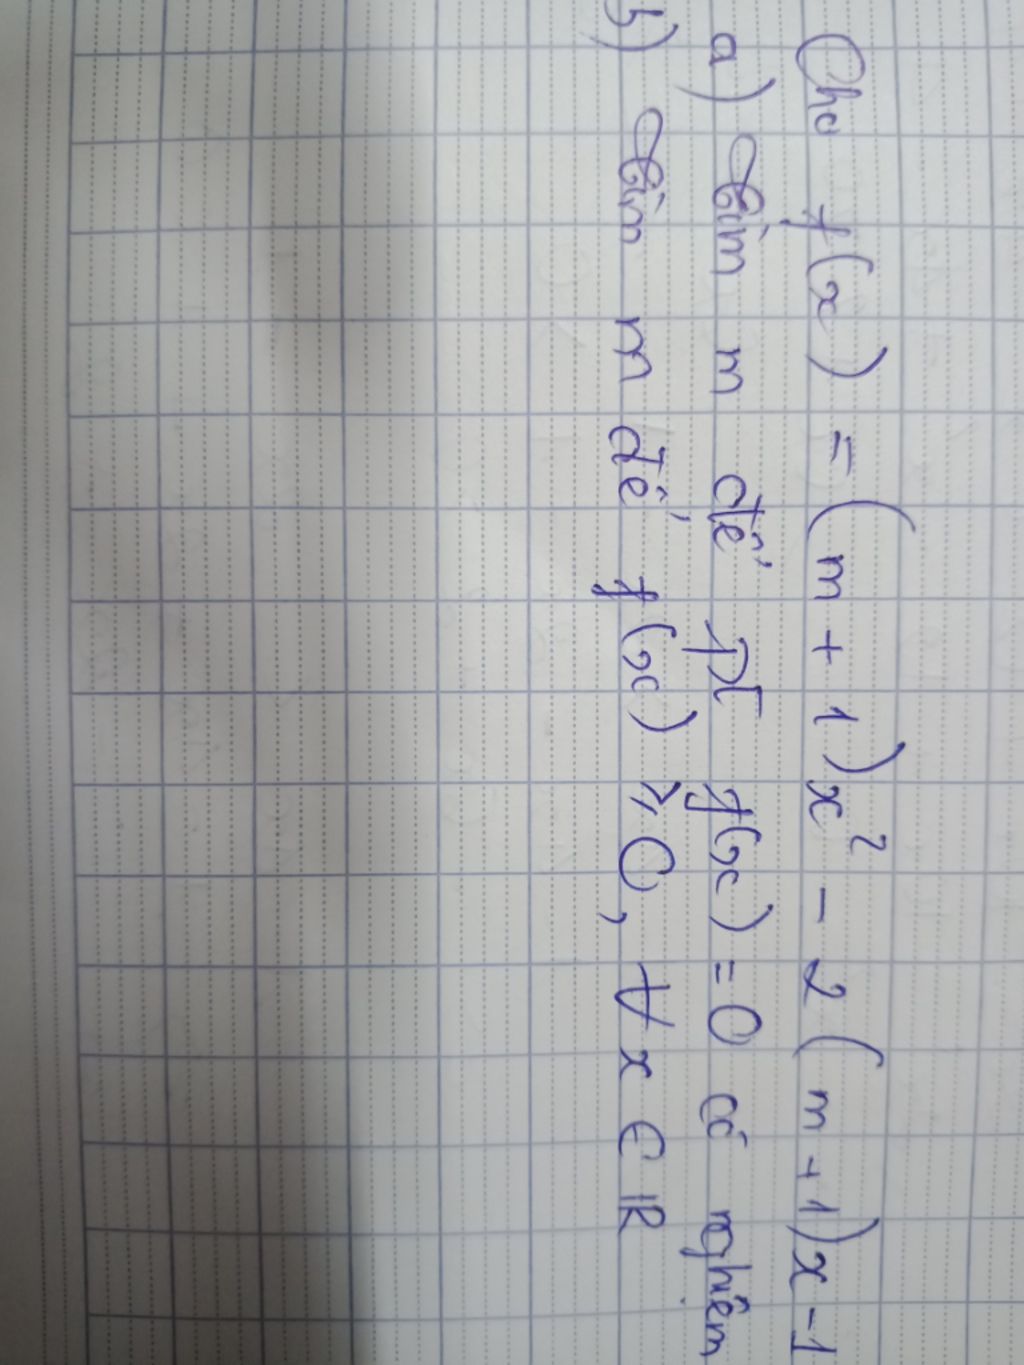 Cho f(x) = (m + 1)x² - 2(m + 1)x - 1
a) Tìm m để pt f(x) = 0 có nghiệm
b) Tìm m để f(x) ≥ 0, ∀x ∈ ℝ